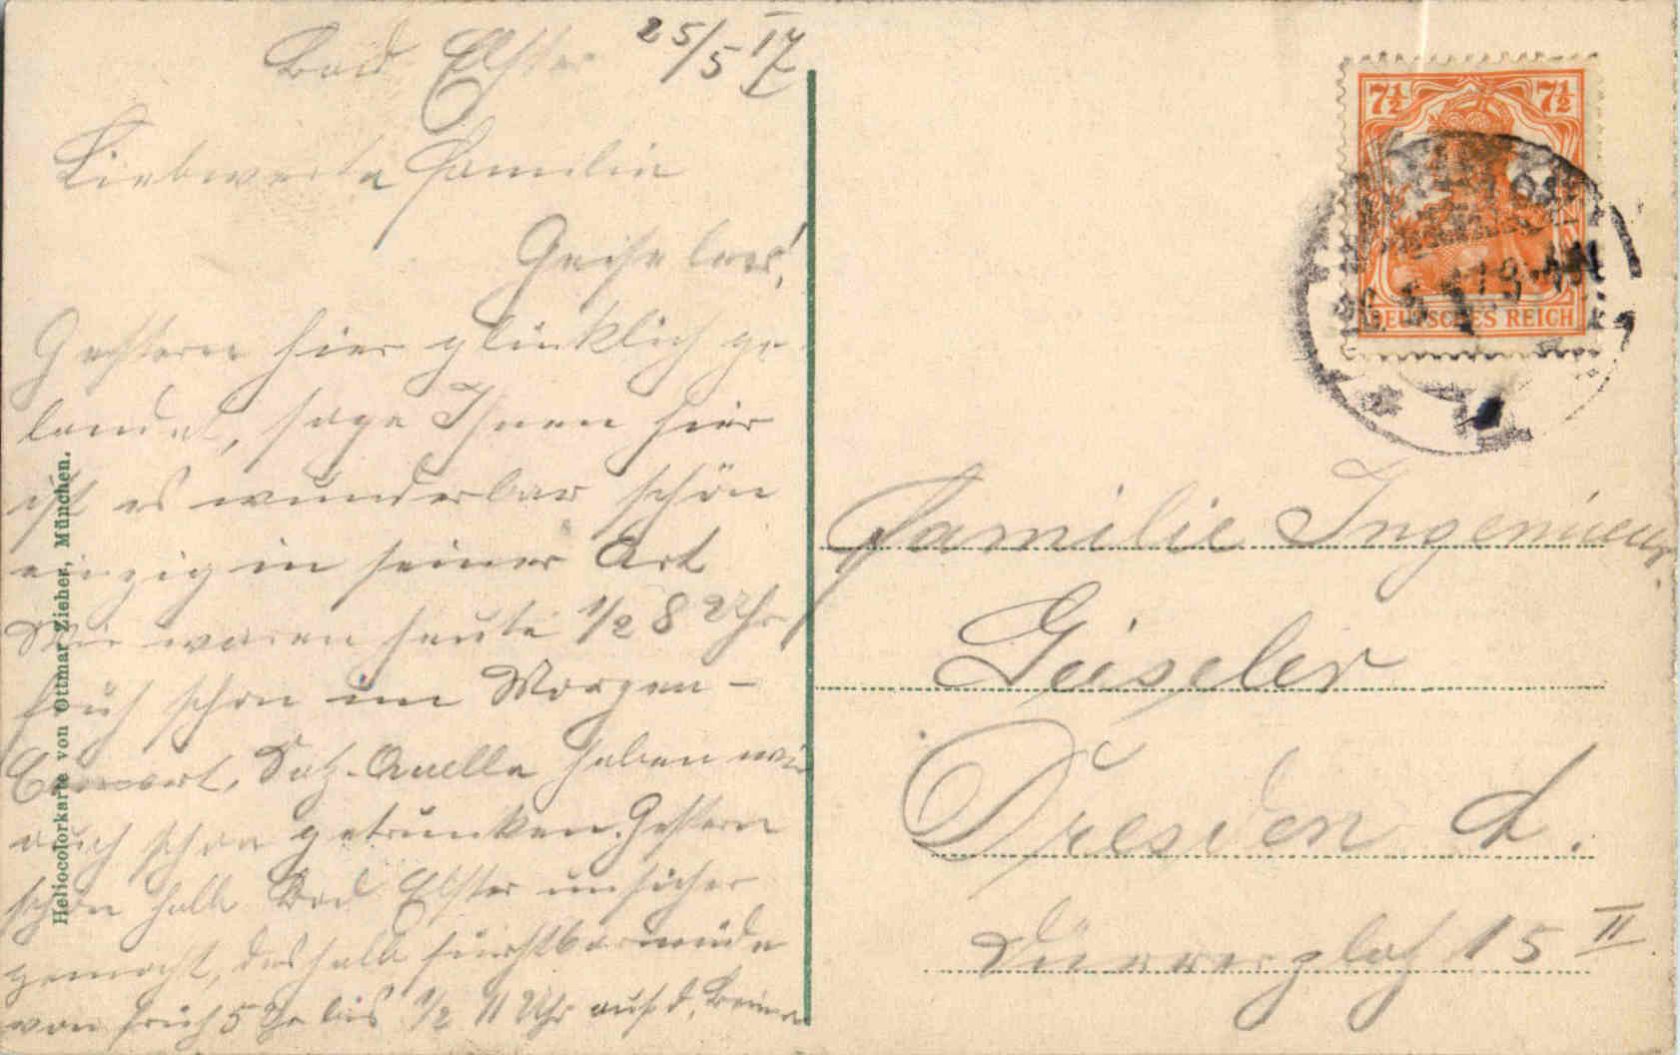 Bad Elster 25/5 17
Liebwerte Familie
Geiseler!
Gestern hier glücklich ge-
landet, sage Ihnen hier
ist es wunderbar schön
einzig in seiner Art
Wir waren heute 1/2 8 Uhr
früh schon im Morgen-
Salz-Quelle haben wir
auch schon getrunken. Gestern
schon halb Bad Elster unsicher
gemacht, deshalb furchtbar müde
von früh 5 Uhr bis 1/2 11 Uhr auf d. Beinen
Heliocolorkarte von Ottmar Zieher, München.
7½ 7½
DEUTSCHES REICH
Familie Ingenieur
Geiseler
Dresden A.
Dürerplatz 15 II